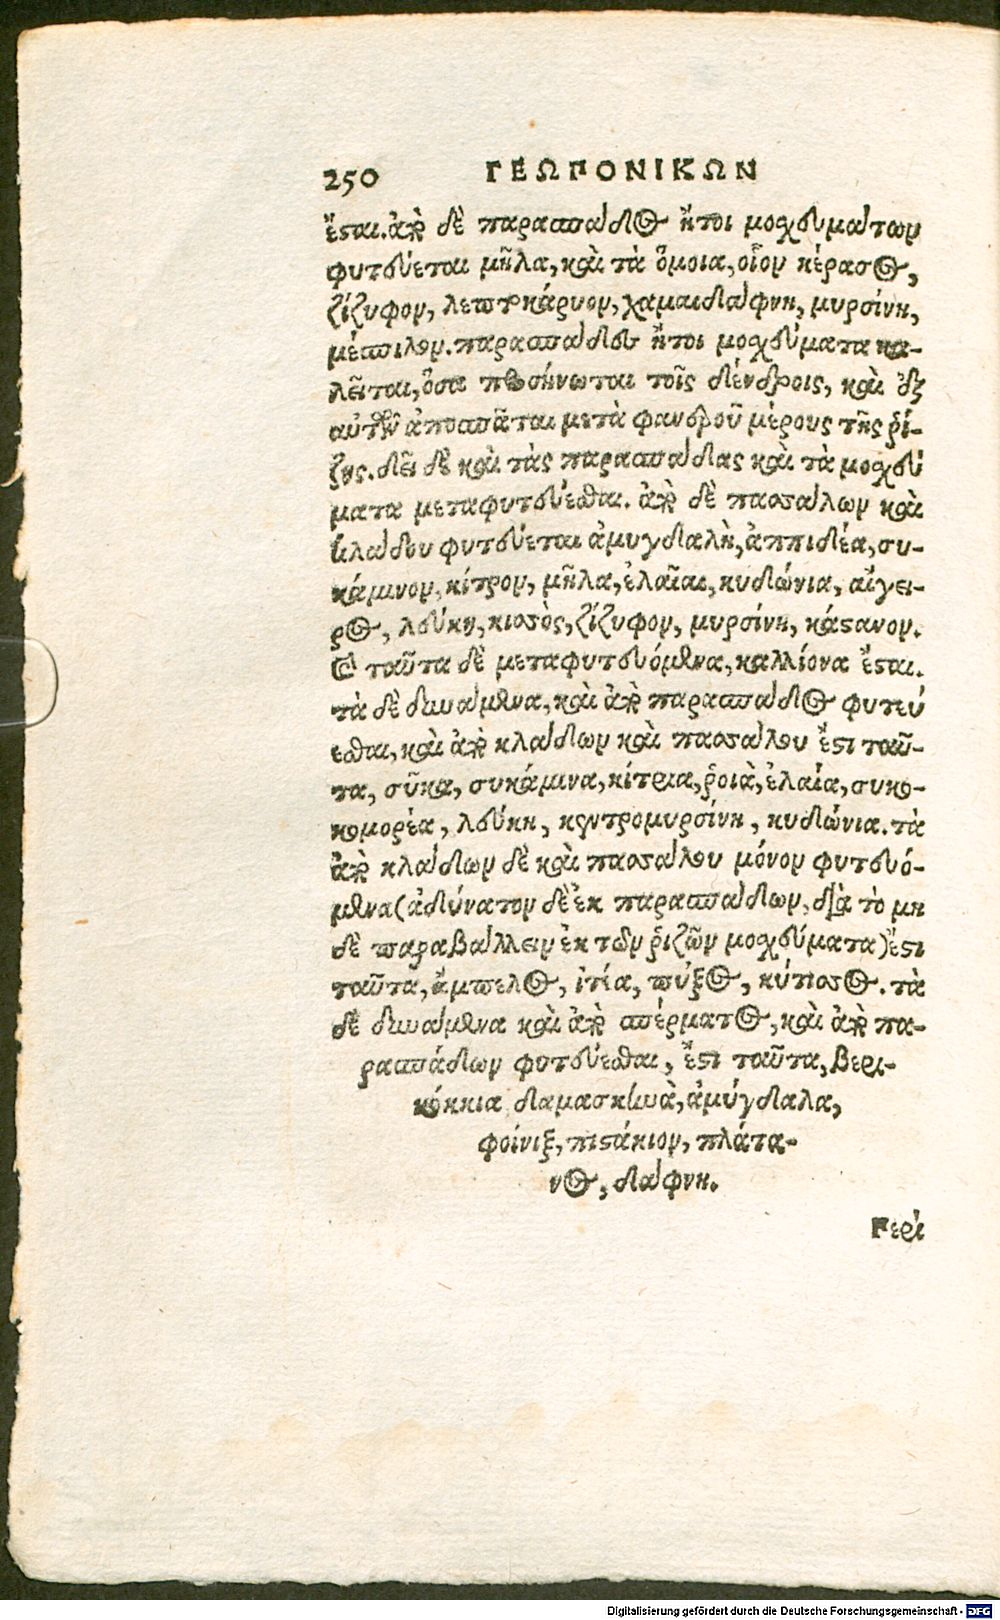 250 ΓΕΩΠΟΝΙΚΩΝ
ἔσται. ἀπὸ δὲ παρασπάδος ἤτοι μοχευμάτων
φυτεύεται μῆλα, καὶ τὰ ὅμοια, οἷον κέρασος,
ζίζυφον, λεπτοκάρυον, χαμαιδάφνη, μυρσίνη,
μέσπιλον. παρασπάδες ἤτοι μοχεύματα κα-
λεῖται, ὅσα προσήνωται τοῖς δένδροις, καὶ ἐξ
αὐτῶν ἀποσπᾶται μετὰ φανεροῦ μέρους τῆς ῥί-
ζης. δεῖ δὲ καὶ τὰς παρασπάδας καὶ τὰ μοχεύ
ματα μεταφυτεύεσθαι. ἀπὸ δὲ πασσάλων καὶ
κλάδου φυτεύεται ἀμυγδαλῆ, ἀππιδέα, συ-
κάμινον, κίτρον, μῆλα, ἐλαῖαι, κυδώνια, αἴγει-
ρος, λεύκη, κισσὸς, ζίζυφον, μυρσίνη, κάστανον.
καὶ ταῦτα δὲ μεταφυτευόμενα, καλλίονα ἔσται.
τὰ δὲ δυνάμενα, καὶ ἀπὸ παρασπάδος φυτεύ
εσθαι, καὶ ἀπὸ κλάδων καὶ πασσάλου ἔστι ταῦ-
τα, σῦκα, συκάμινα, κίτρια, ῥοιὰ, ἐλαία, συκο-
κομορέα, λεύκη, κεντρομυρσίνη, κυδώνια. τὰ
ἀπὸ κλάδων δὲ καὶ πασσάλου μόνον φυτευό-
μενα (ἀδύνατον δὲ ἐκ παρασπάδων, διὰ τὸ μη
δὲ παραβάλλειν ἐκ τῶν ῥιζῶν μοχεύματα) ἔστι
ταῦτα, ἄμπελος, ἰτέα, πύξος, κύτισος. τὰ
δὲ δυνάμενα καὶ ἀπὸ σπέρματος, καὶ ἀπὸ πα-
ρασπάδων φυτεύεσθαι, ἔστι ταῦτα, βερι-
κόκκια δαμασκηνὰ, ἀμύγδαλα,
φοίνιξ, πιστάκιον, πλάτα-
νος, δάφνη.
Περὶ
Digitalisierung gefördert durch die Deutsche Forschungsgemeinschaft - DFG